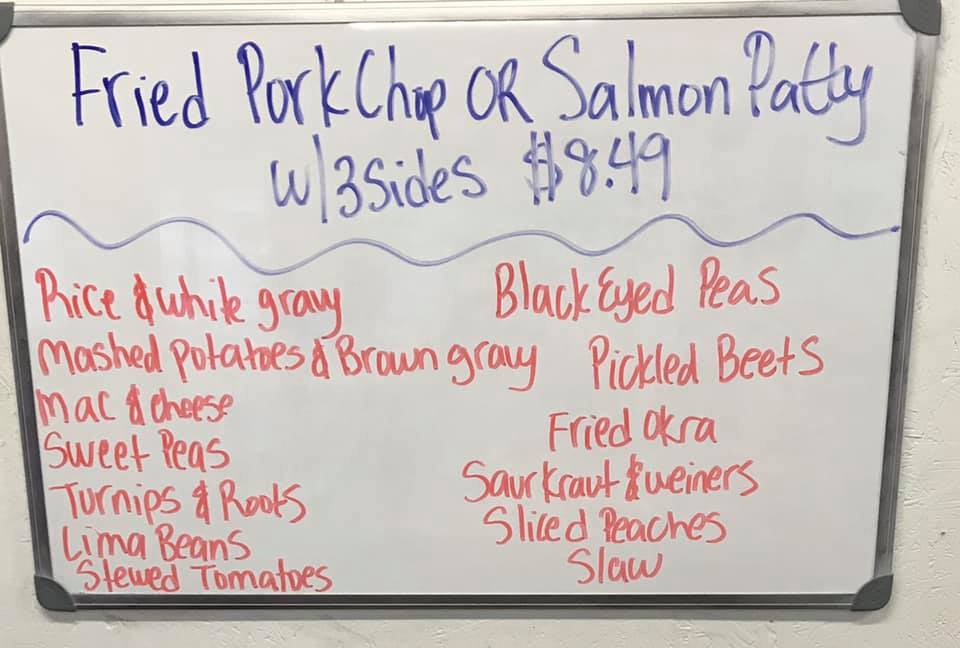 Fried Pork Chop OR Salmon Patty
w/3 Sides $8.49
Rice & white gravy
Mashed potatoes & Brown gravy
Mac & cheese
Sweet Peas
Turnips & Roots
Lima Beans
Stewed Tomatoes
Black Eyed Peas
Pickled Beets
Fried Okra
Saurkraut & weiners
Sliced Peaches
Slaw